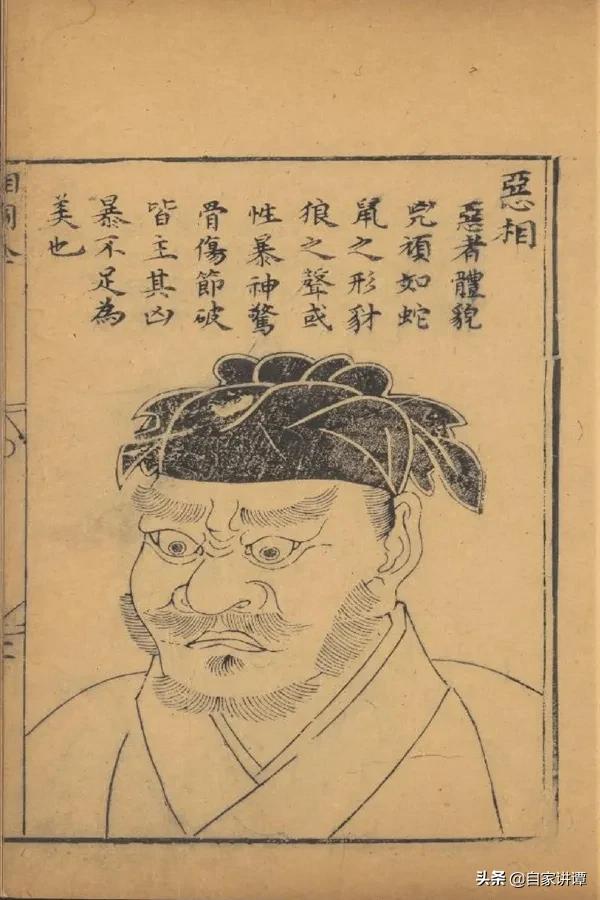 惡相
惡者體貌
兇頑如蛇
鼠之形豺
狼之聲或
性暴神驚
骨傷節破
皆主其凶
暴不足為
美也
头条 @自家讲谭